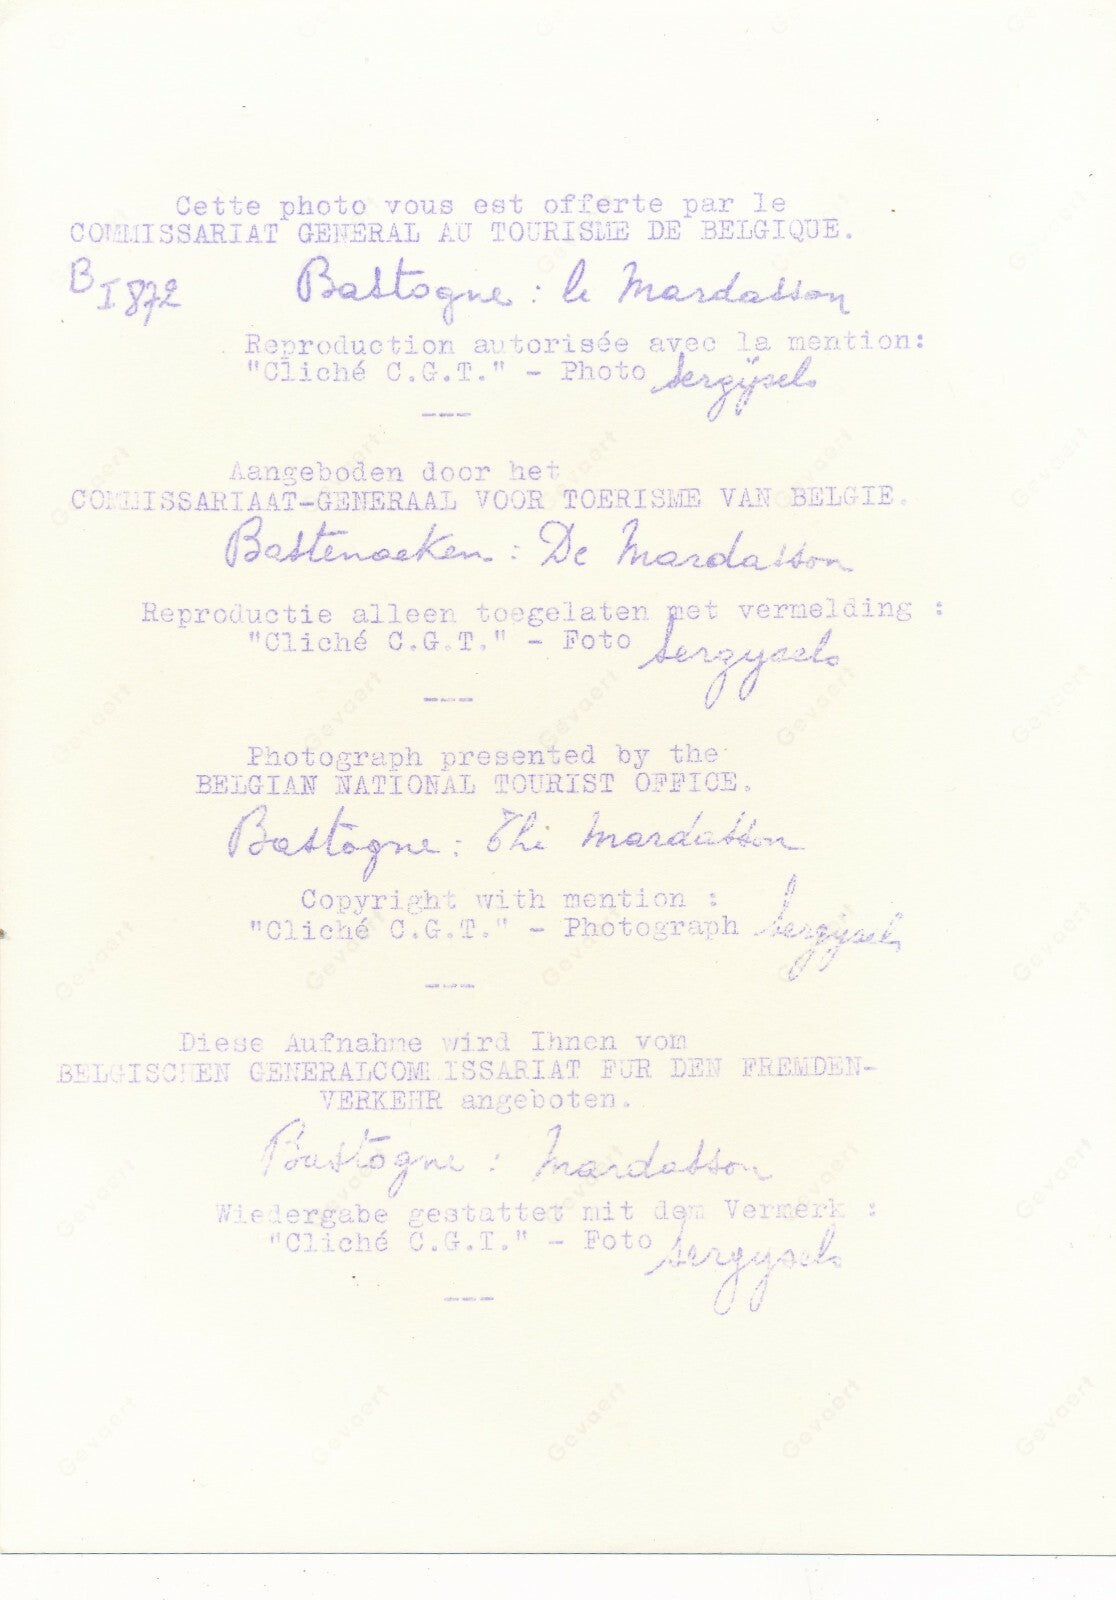 Cette photo vous est offerte par le
COMMISSARIAT GENERAL AU TOURISME DE BELGIQUE.
B I 872 Bastogne : le Mardasson
Reproduction autorisée avec la mention:
"Cliché C.G.T." - Photo Sergijsels
---
Aangeboden door het
COMMISSARIAAT-GENERAAL VOOR TOERISME VAN BELGIE.
Bastenaeken : De Mardasson
Reproductie alleen toegelaten met vermelding :
"Cliché C.G.T." - Foto Sergysels
---
Photograph presented by the
BELGIAN NATIONAL TOURIST OFFICE.
Bastogne : The Mardasson
Copyright with mention :
"Cliché C.G.T." - Photograph Sergijsels
---
Diese Aufnahme wird Ihnen vom
BELGISCHEN GENERALCOMMISSARIAT FUR DEN FREMDEN-
VERKEHR angeboten.
Bastogne : Mardasson
Wiedergabe gestattet mit dem Vermerk :
"Cliché C.G.T." - Foto Sergysels
---
Gevaert